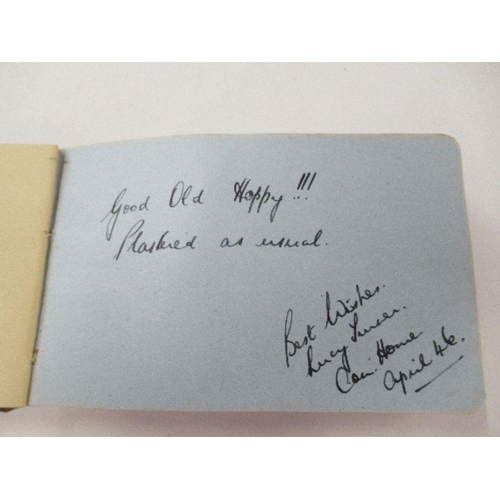 Good Old Hoppy!!!
Plastered as usual.
Best Wishes.
Lucy
Con. Home
April 46.